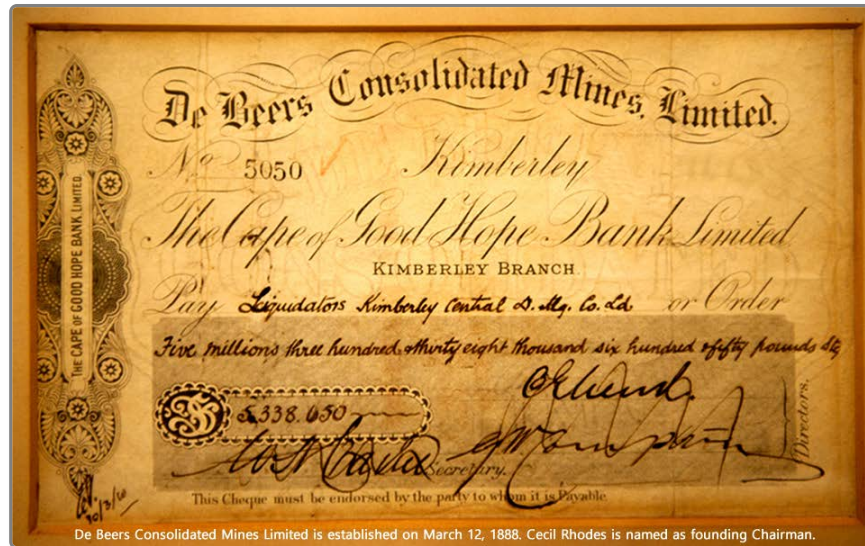 De Beers Consolidated Mines, Limited.
No 5050 Kimberley
The Cape of Good Hope Bank Limited
KIMBERLEY BRANCH
Pay Liquidators Kimberley Central D. Mg. Co. Ld or Order
Five millions three hundred & thirty eight thousand six hundred & fifty pounds Stg
5,338,650
Directors.
Secretary.
This Cheque must be endorsed by the party to whom it is Payable.
THE CAPE OF GOOD HOPE BANK LIMITED.
De Beers Consolidated Mines Limited is established on March 12, 1888. Cecil Rhodes is named as founding Chairman.